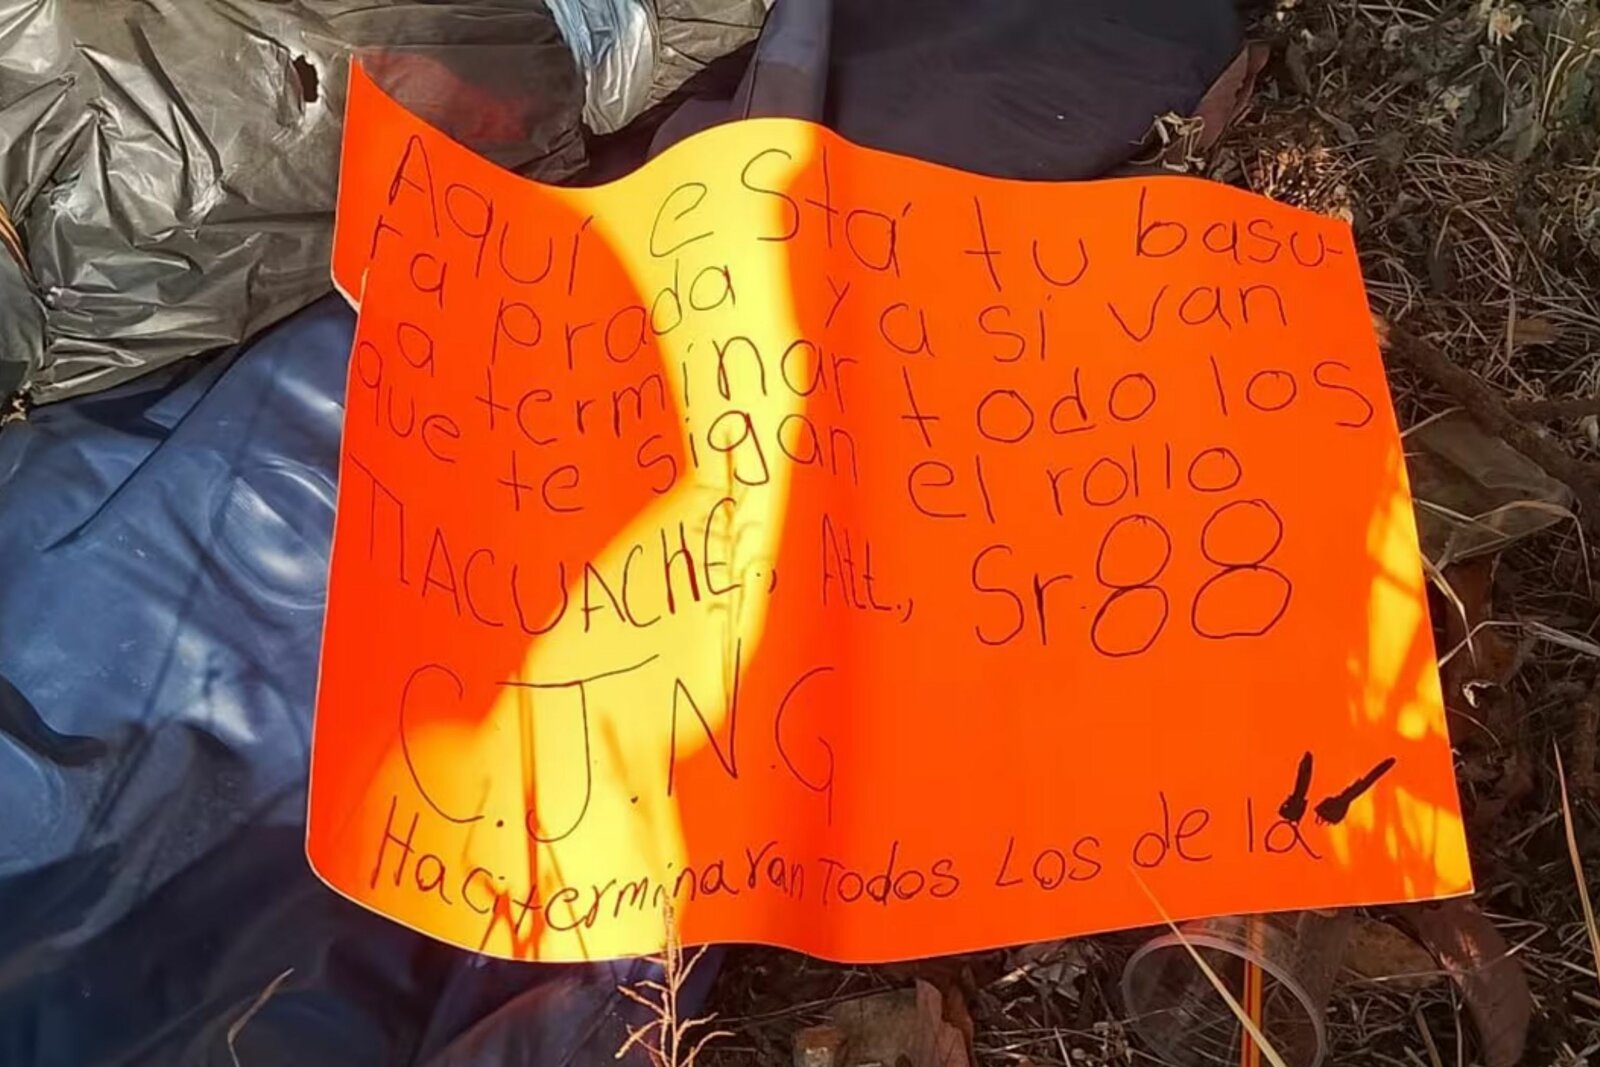 Aquí está tu basu-
ra prada y a si van
a terminar todo los
que te sigan el rollo
TLACUACHE., Att., Sr.88
C.J.N.G
Haciterminaran Todos Los de la